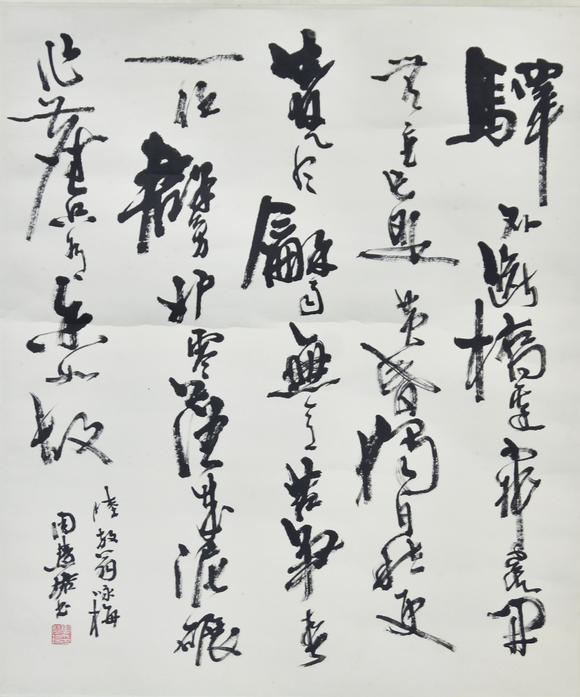 驛外斷橋邊寂寞開
无主已是黄昏獨自愁更
著風龢雨無意苦爭春
一任群芳妒零落成泥碾
作塵只有香如故
陸放翁咏梅
周慧珺书